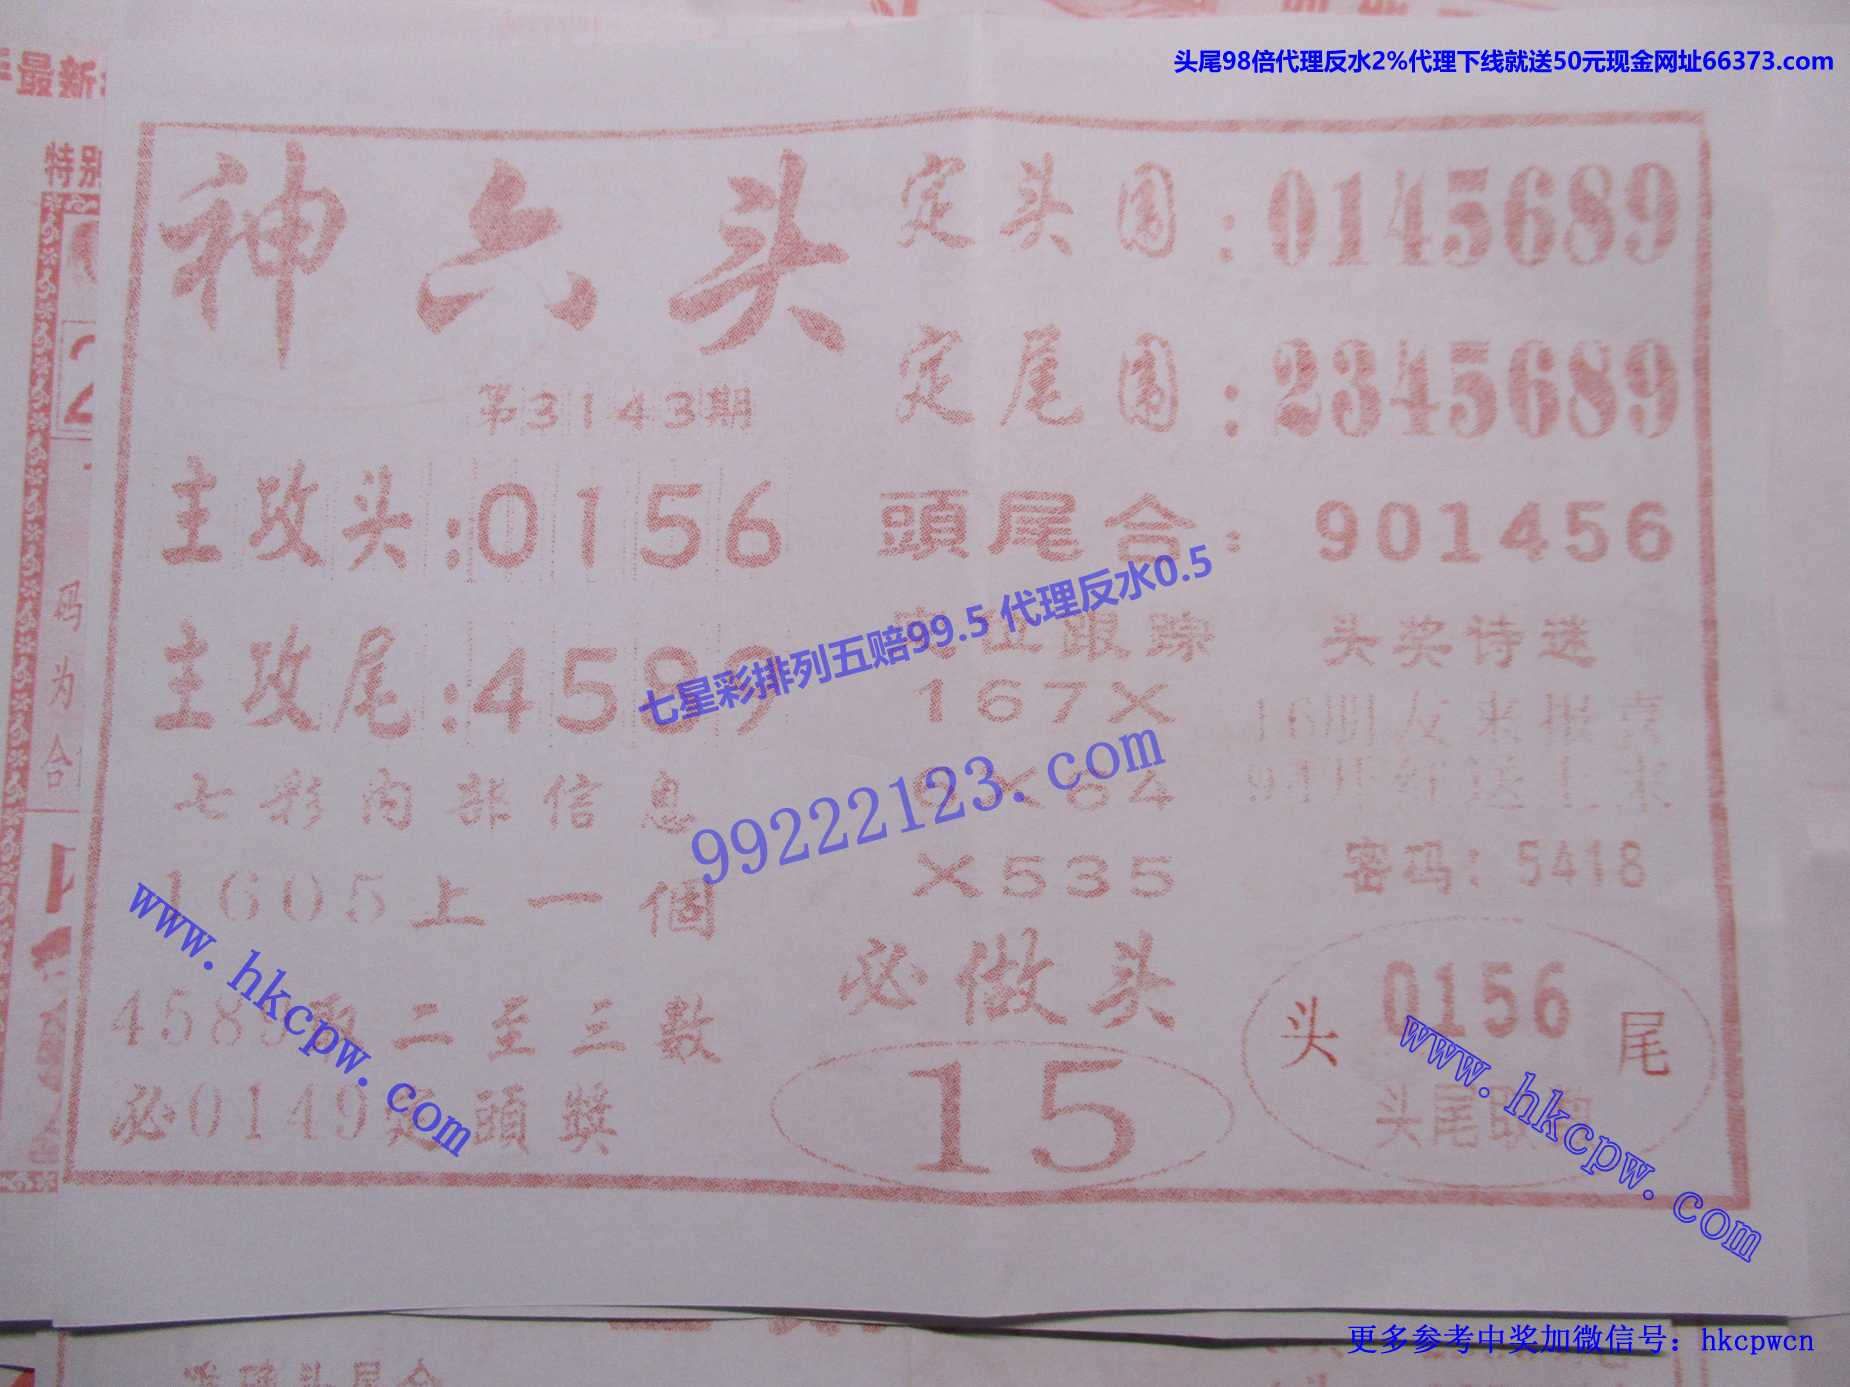 头尾98倍代理反水2%代理下线就送50元现金网址66373.com
最新
特别
神六头
第3143期
主攻头:0156
主攻尾:4589
七彩内部信息
1605上一個
4589取二至三数
必0149定頭獎
定头围:0145689
定尾围:2345689
頭尾合:901456
跟踪
167X
X535
必做头
15
头奖诗迷
16朋友来
密码:5418
头 0156 尾
头尾
码
为
合
2
七星彩排列五赔99.5 代理反水0.5
99222123.com
www.hkcpw.com
www.hkcpw.com
更多参考中奖加微信号：hkcpwcn